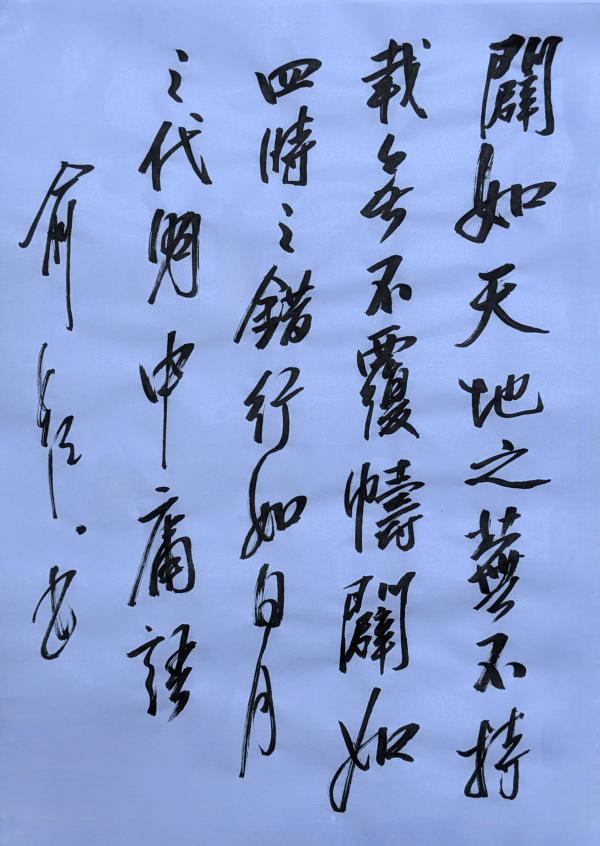 闢如天地之蕪不持
載無不覆幬闢如
四時之錯行如日月
之代明中庸語
俞
書